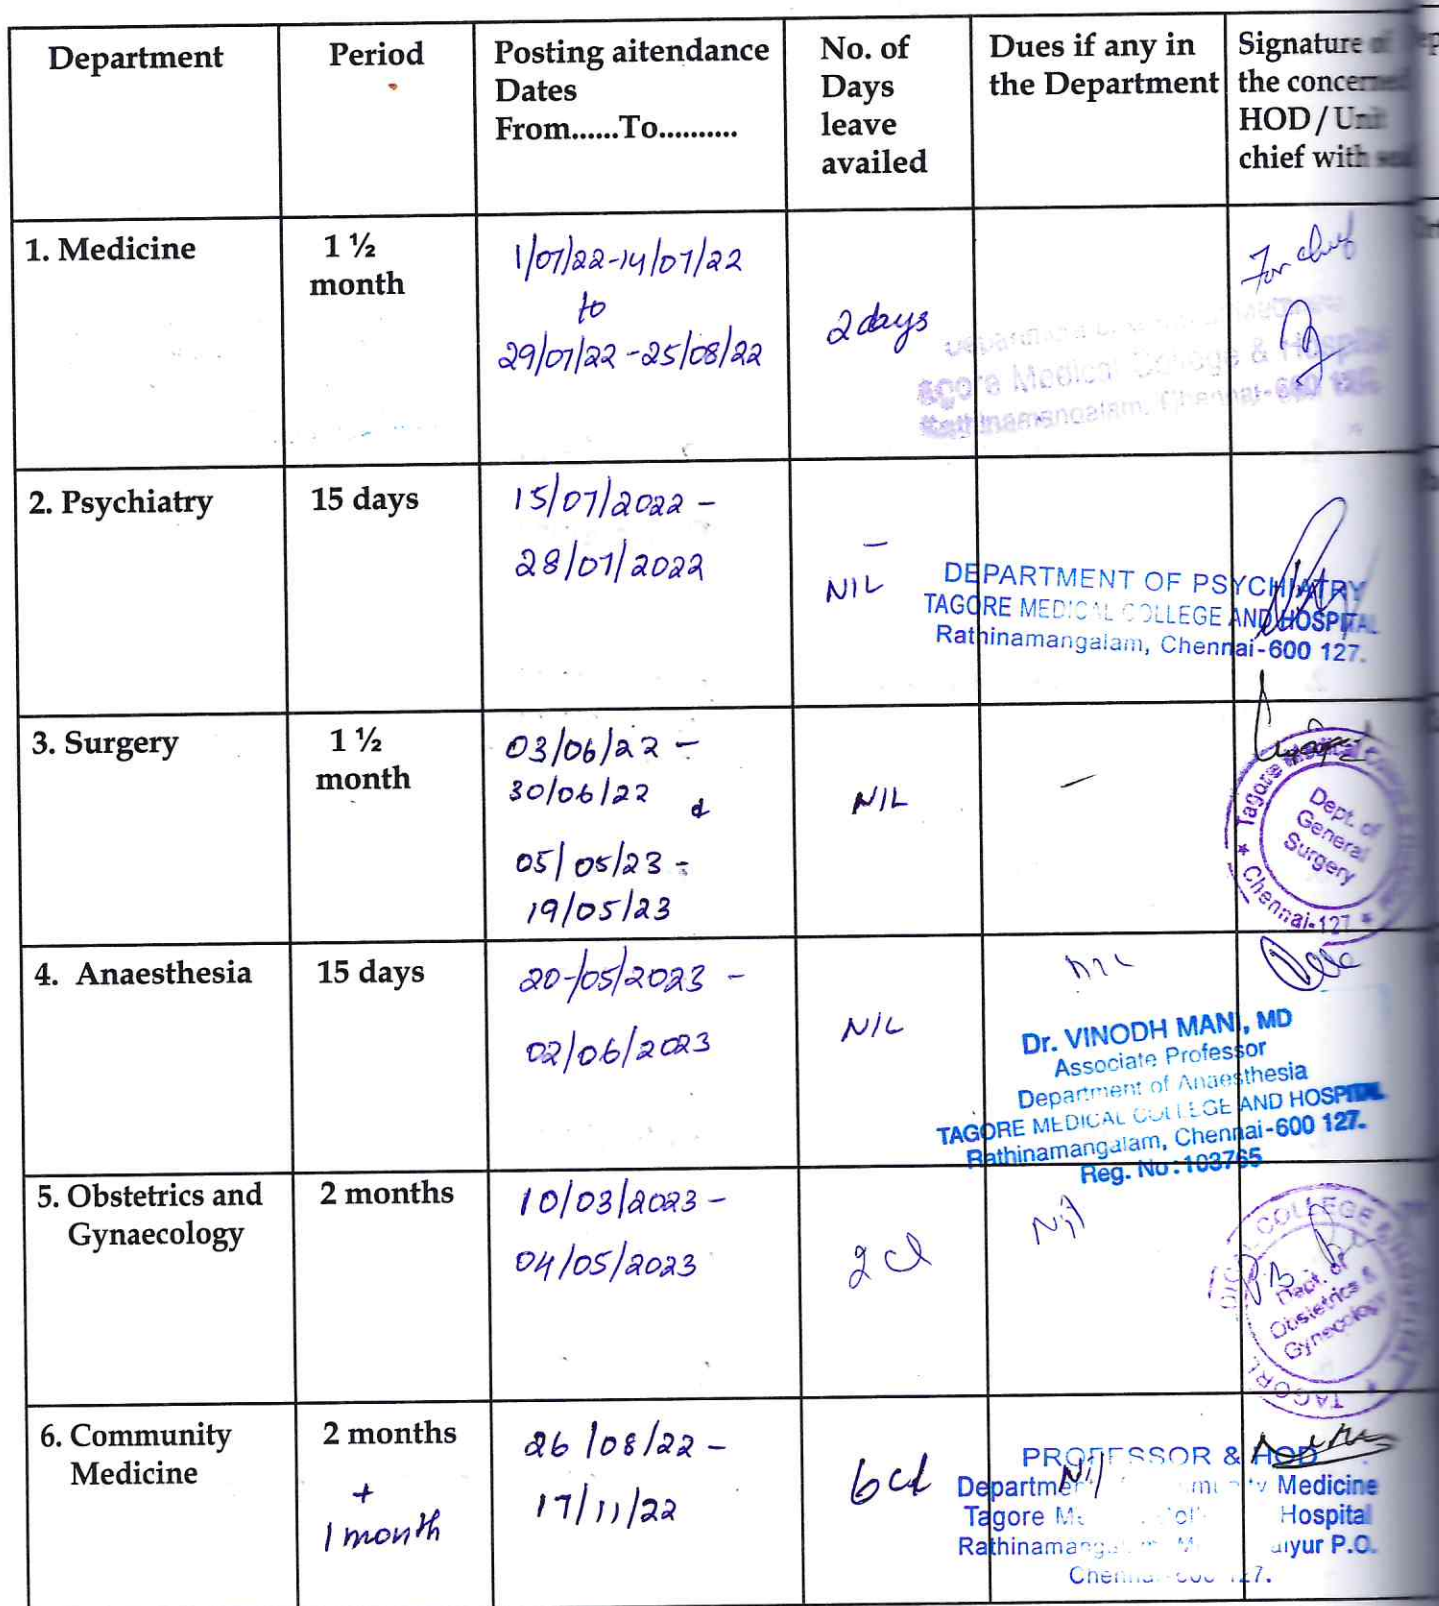 Department
Period
Posting aitendance
Dates
From......To..........
No. of
Days
leave
availed
Dues if any in
the Department
Signature of
the concerned
HOD / Unit
chief with seal
1. Medicine
1 ½
month
1/07/22-14/07/22
to
29/07/22 - 25/08/22
2 days
For chief
agore Medical College & Hospital
Rathinamangalam, Chennai-600 127.
2. Psychiatry
15 days
15/07/2022 -
28/07/2022
-
NIL
DEPARTMENT OF PSYCHIATRY
TAGORE MEDICAL COLLEGE AND HOSPITAL
Rathinamangalam, Chennai-600 127.
3. Surgery
1 ½
month
03/06/22 -
30/06/22 &
05/05/23 -
19/05/23
NIL
-
Tagore Medical College & Hospital
Dept. of
General
Surgery
* Chennai-127 *
4. Anaesthesia
15 days
20/05/2023 -
02/06/2023
NIL
NIL
Dr. VINODH MANI, MD
Associate Professor
Department of Anaesthesia
TAGORE MEDICAL COLLEGE AND HOSPITAL
Rathinamangalam, Chennai-600 127.
Reg. No : 103765
5. Obstetrics and
Gynaecology
2 months
10/03/2023 -
04/05/2023
2 cl
Nil
COLLEGE & HOSPITAL
Dept. of
Obstetrics &
Gynecology
TAGORE
6. Community
Medicine
2 months
+
1 month
26/08/22 -
17/11/22
6 cl
Nil
PROFESSOR & HOD
Department Community Medicine
Tagore Hospital
Rathinamangalam
Chennai-600 127.